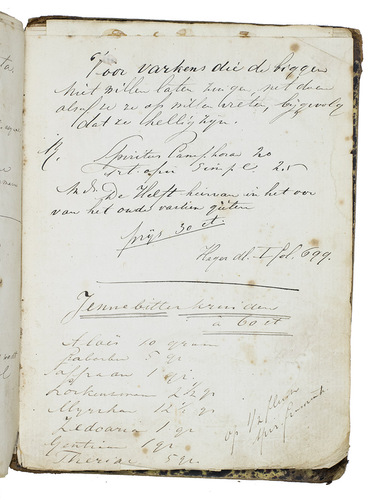 Voor varkens die de biggen
niet willen laten zuigen, net doen
alsof ze ze op willen vreten, bijgevolg
dat ze hellig zijn.
R. Spiritus Camphorae 20
t. opii Simpl. 2.5
M. ds. De Helft hiervan in het oor
van het oude varken gieten
prijs 30 ct.
Heyer dl. I fol. 699.
Jennebitter kruiden
à 60 ct
Aloës 10 gram
Rabarber 5 gr.
Saffraan 1 gr.
Lorkenzwam 2 ½ gr.
Myrrhae 12 ½ gr.
Zedoaria 1 gr.
Gentian 6 gr.
Theriac 5 gr.
op ½ flesch